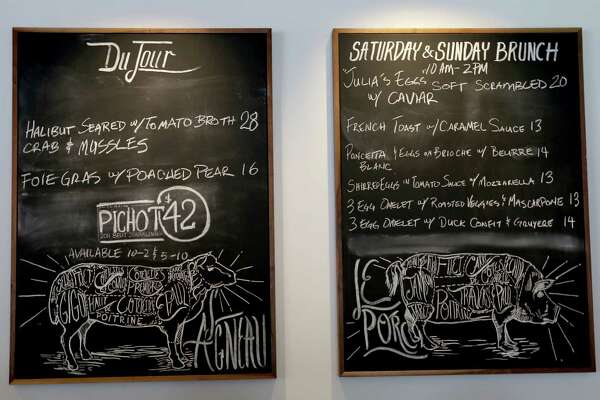 Du Jour
HALIBUT SEARED W/ TOMATO BROTH 28
CRAB & MUSSLES
FOIE GRAS W/ POACHED PEAR 16
PICHOT $42
2011 BRUT SPARKLING
AVAILABLE 10-2 & 5-10
GIGOT
POITRINE
AGNEAU
SATURDAY & SUNDAY BRUNCH
10AM-2PM
"JULIA'S EGGS SOFT SCRAMBLED 20
W/ CAVIAR
FRENCH TOAST W/ CARAMEL SAUCE 13
PANCETTA & EGGS ON BRIOCHE W/ BEURRE 14
BLANC
SHIRRED EGGS W/ TOMATO SAUCE W/ MOZZARELLA 13
3 EGG OMELET W/ ROASTED VEGGIES & MASCARPONE 13
3 EGG OMELET W/ DUCK CONFIT & GRUYERE 14
FILET
JAMBON
TRAVERS
LE PORC